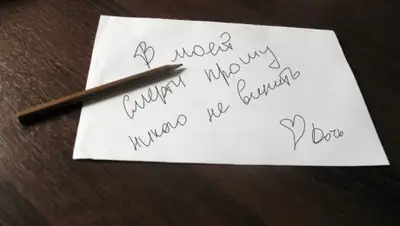 В моей
смерти прошу
никого не винить
♡ Дочь